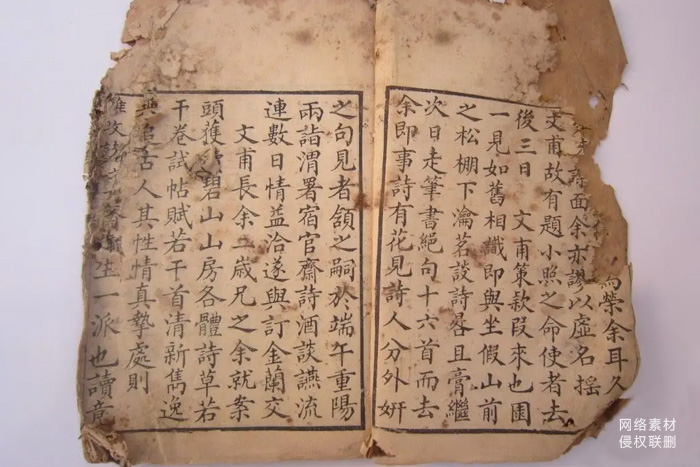 榮余耳久
詩面余亦謬以虛名揺
文甫故有題小照之命使者去
後三日 文甫策款段來也園
一見如舊相識即與坐假山前
之松棚下瀹茗談詩晷且膏繼
次日走筆書絕句十六首而去
余即事詩有花見詩人分外妍
之句見者頷之嗣於端午重陽
兩詣渭署宿官齋詩酒談讌流
連數日情益洽遂與訂金蘭交
文甫長余二歲兄之余就案
頭獲碧山山房各體詩草若
干卷試帖賦若干首清新雋逸
追古人其性情真摯處則
生一派也讀竟
网络素材
侵权联删